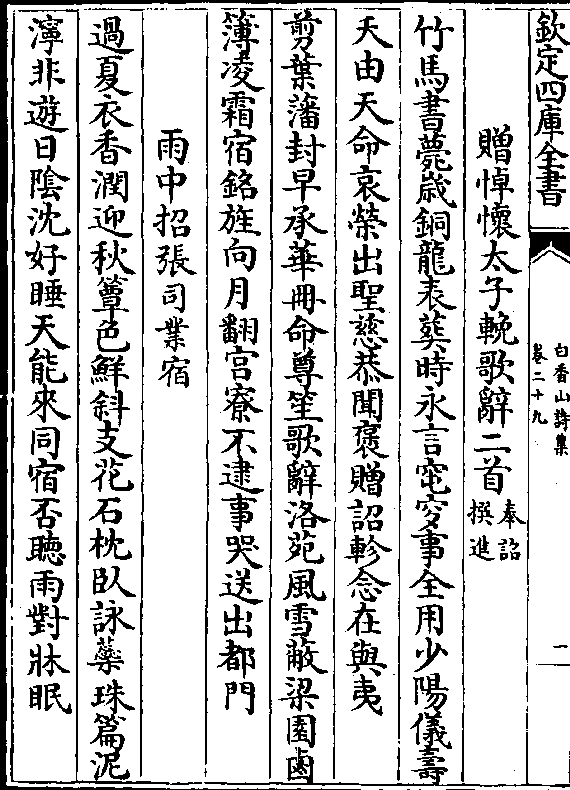 欽定四庫全書
白香山詩集
卷二十九
二
贈悼懷太子輓歌辭二首奉詔撰進
竹馬書薨歲銅龍表葬時永言窀穸事全用少陽儀壽
夭由天命哀榮出聖慈恭聞褒贈詔軫念在與夷
剪葉藩封早承華冊命尊笙歌辭洛苑風雪蔽梁園鹵
簿凌霜宿銘旌向月翻宮寮不逮事哭送出都門
雨中招張司業宿
過夏衣香潤迎秋簟色鮮斜支花石枕臥詠蘂珠篇泥
濘非遊日陰沈好睡天能來同宿否聽雨對牀眠